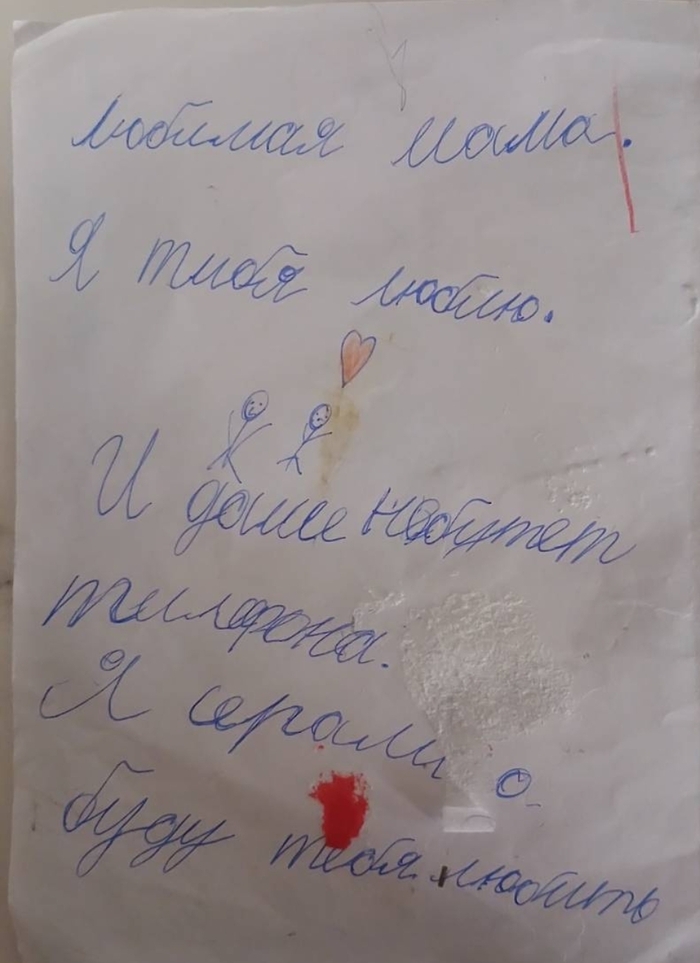 любимая мама.
Я тибя люблю.
И даше небутет
тилфона.
Я
буду тебя любить